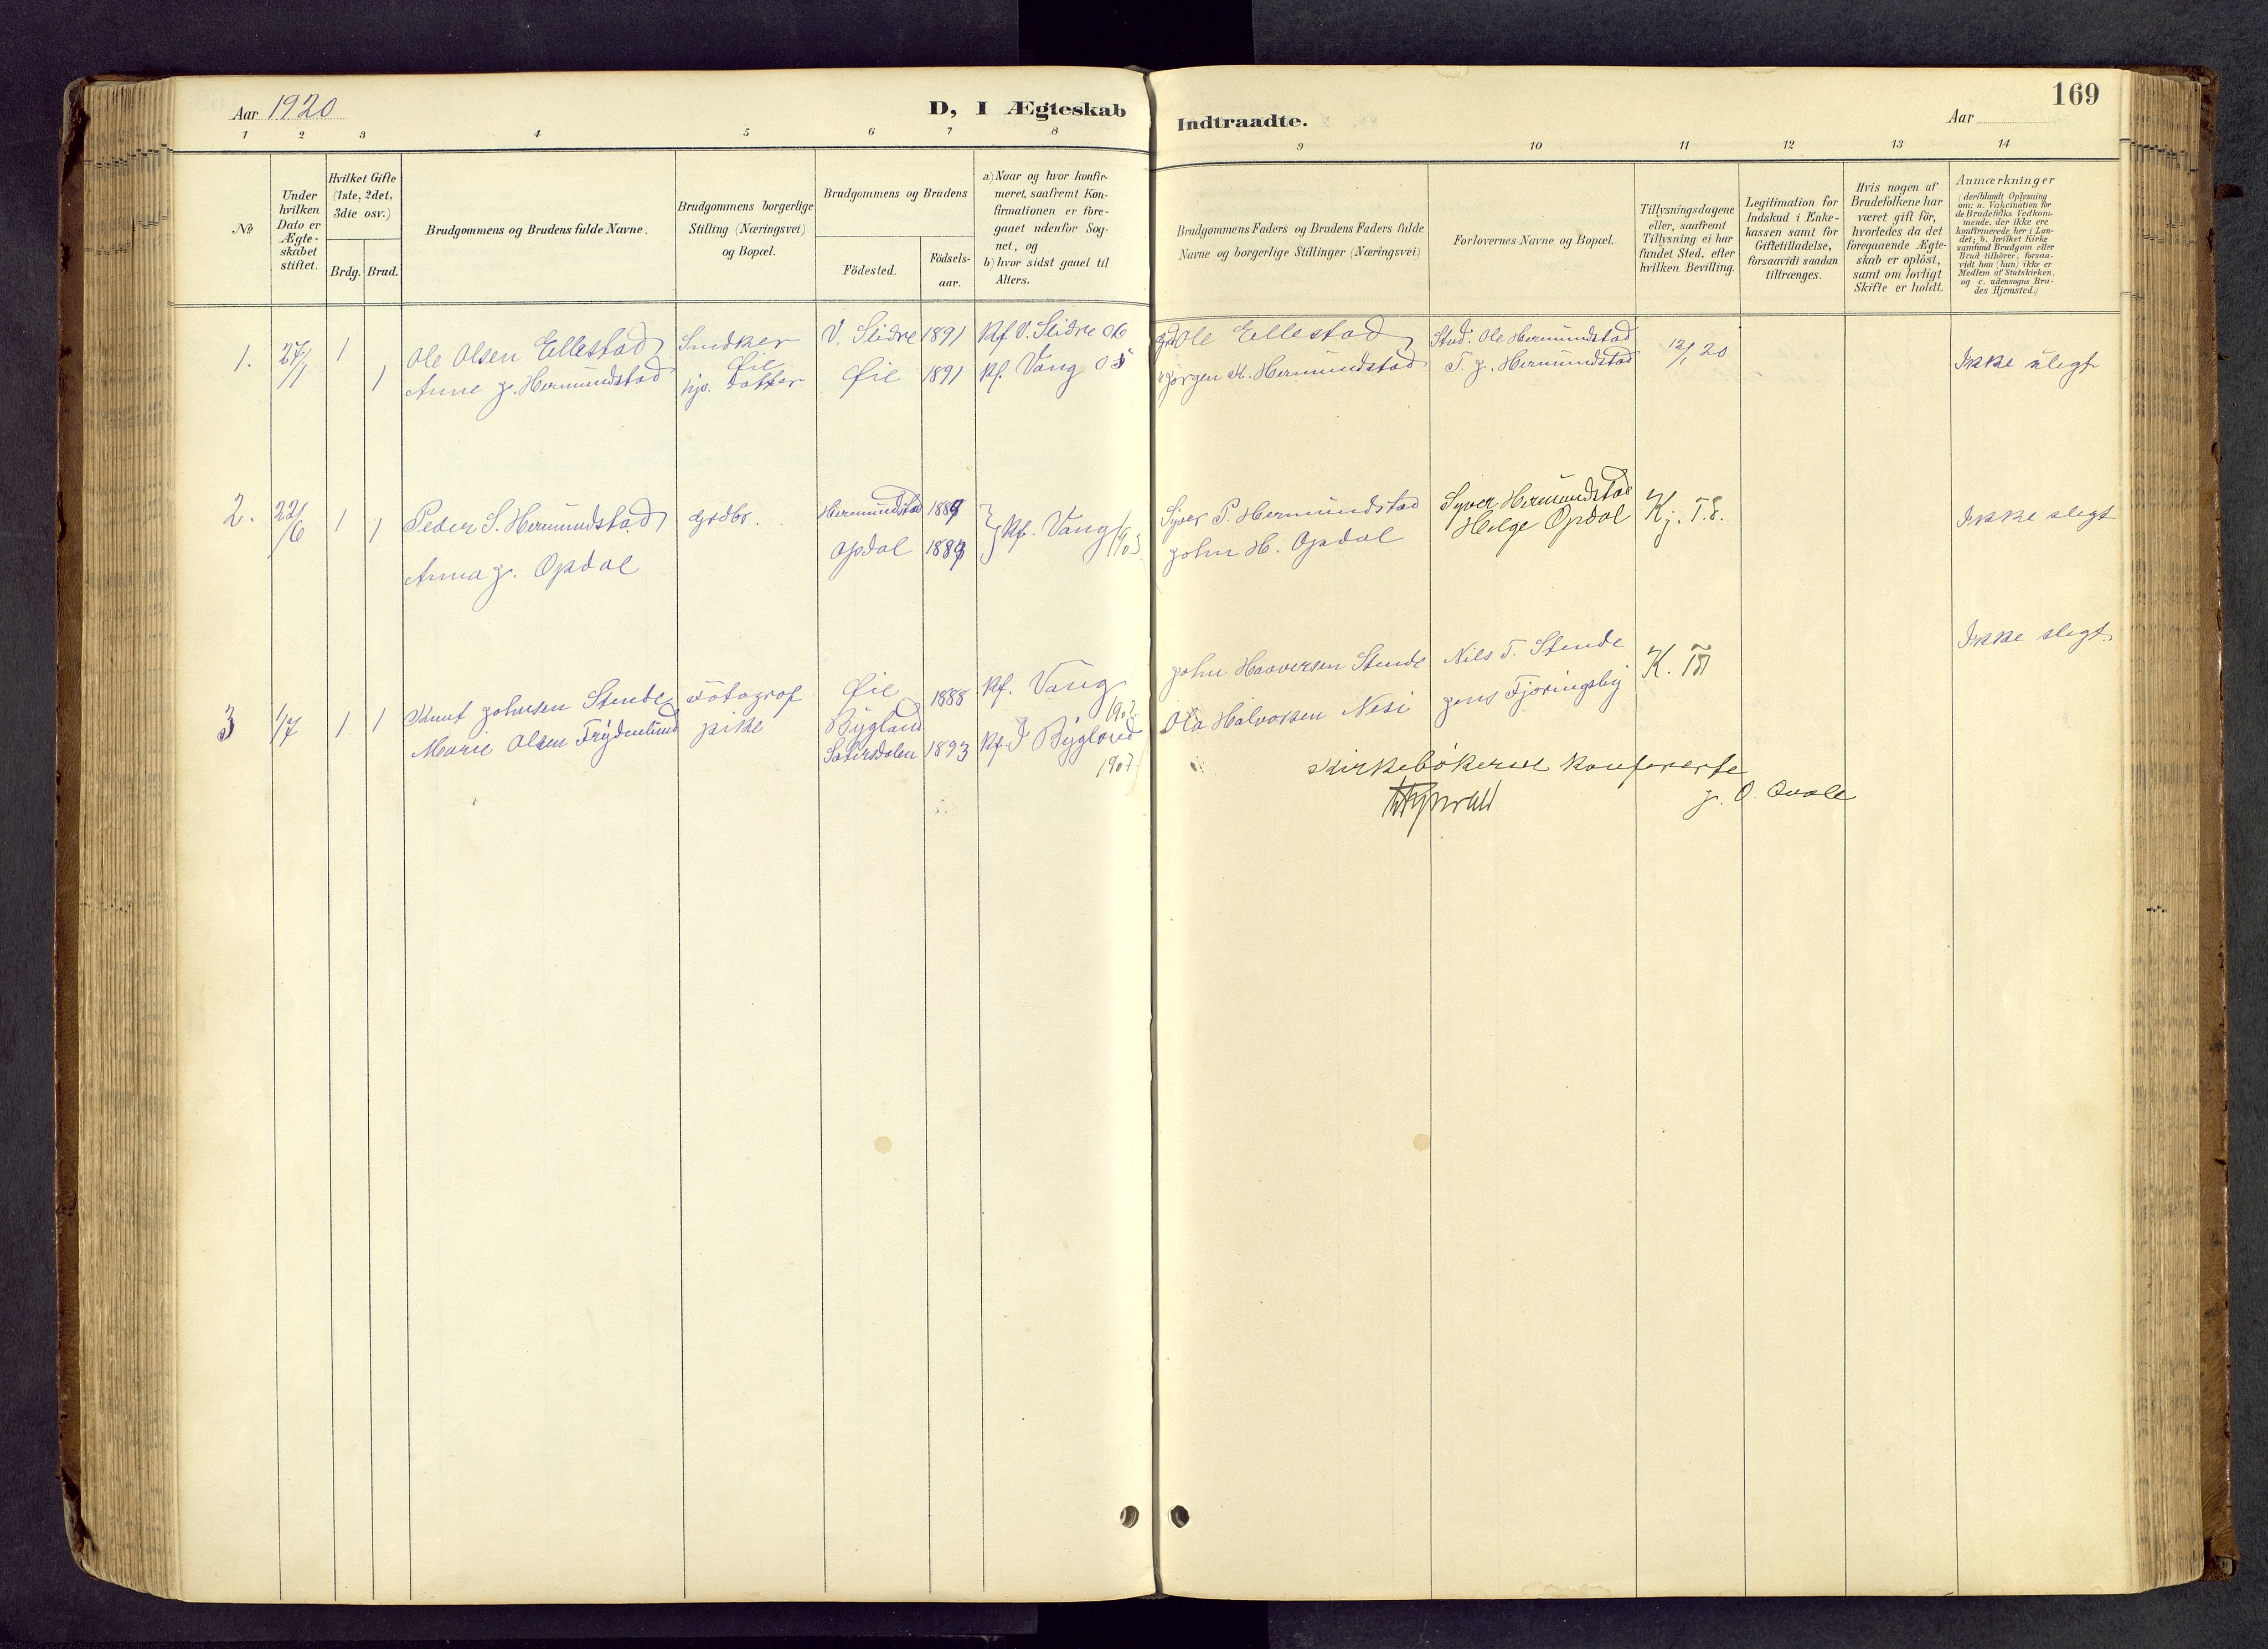 169
Aar 1920
D, I Ægteskab
Indtraadte.
Aar
1 2 3 4 5 6 7 8
9 10 11 12 13 14
No
Under
hvilken
Dato er
Ægte-
skabet
stiftet.
Hvilket Gifte
(1ste, 2det,
3die osv.)
Brdg. Brud.
Brudgommens og Brudens fulde Navne.
Brudgommens borgerlige
Stilling (Næringsvei)
og Bopæl.
Brudgommens og Brudens
Födested.
Födsels-
aar.
a) Naar og hvor konfir-
meret, saafremt Kon-
firmationen er fore-
gaaet udenfor Sog-
net, og
b) hvor sidst gaaet til
Alters.
Brudgommens Faders og Brudens Faders fulde
Navne og borgerlige Stillinger (Næringsvei)
Forlovernes Navne og Bopæl.
Tillysningsdagene
eller, saafremt
Tillysning ei har
fundet Sted, efter
hvilken Bevilling.
Legitimation for
Indskud i Enke-
kassen samt for
Giftetilladelse,
forsaavidt saadan
tiltrænges.
Hvis nogen af
Brudefolkene har
været gift för,
hvorledes da det
foregaaende Ægte-
skab er oplöst,
samt om lovligt
Skifte er holdt.
Anmærkninger
(deriblandt Oplysning
om: a. Vakcination for
de Brudefolks Vedkom-
mende, der ikke ere
konfirmerede her i Lan-
det; b. hvilket Kirke
samfund Brudgom eller
Brud tilhörer, forsaa-
vidt han (hun) ikke er
Medlem af Statskirken,
og c. udensogns Bru-
des Hjemsted.)
1. 27/1 1 Ole Olsen Ellestad Snedker V. Slidre 1891 Kf V. Slidre 06 Ole Ellestad Stud. Ole Hermundstad 12/1 20 Ikke slegt
Øil
1 Anne J. Hermundstad hjv. datter Øil 1891 Kf. Vang 05 Jørgen H. Hermundstad T. J. Hermundstad
2. 22/6 1 1 Peder S. Hermundstad Grdbr. Hermundstad 1889 Kf. Vang 1903 Syver P. Hermundstad Syver Hermundstad Kj. T.E. Ikke slegt
Anna J. Opdal Opdal 1889 John H. Opdal Helge Opdal
3 1/7 1 1 Knut Johnsen Stende Fotograf Øil 1888 Kf. Vang 1902 John Haaversen Stende Nils T. Stende K. Ikke slegt
Marie Olsen Frydenlund pike Bygland
Sætersdalen 1893 Kf. I Bygland 1907 Ola Halvorsen Nesi Jens Fjøringsby
Kirkebøkerne konfererte
J. O. Qvale